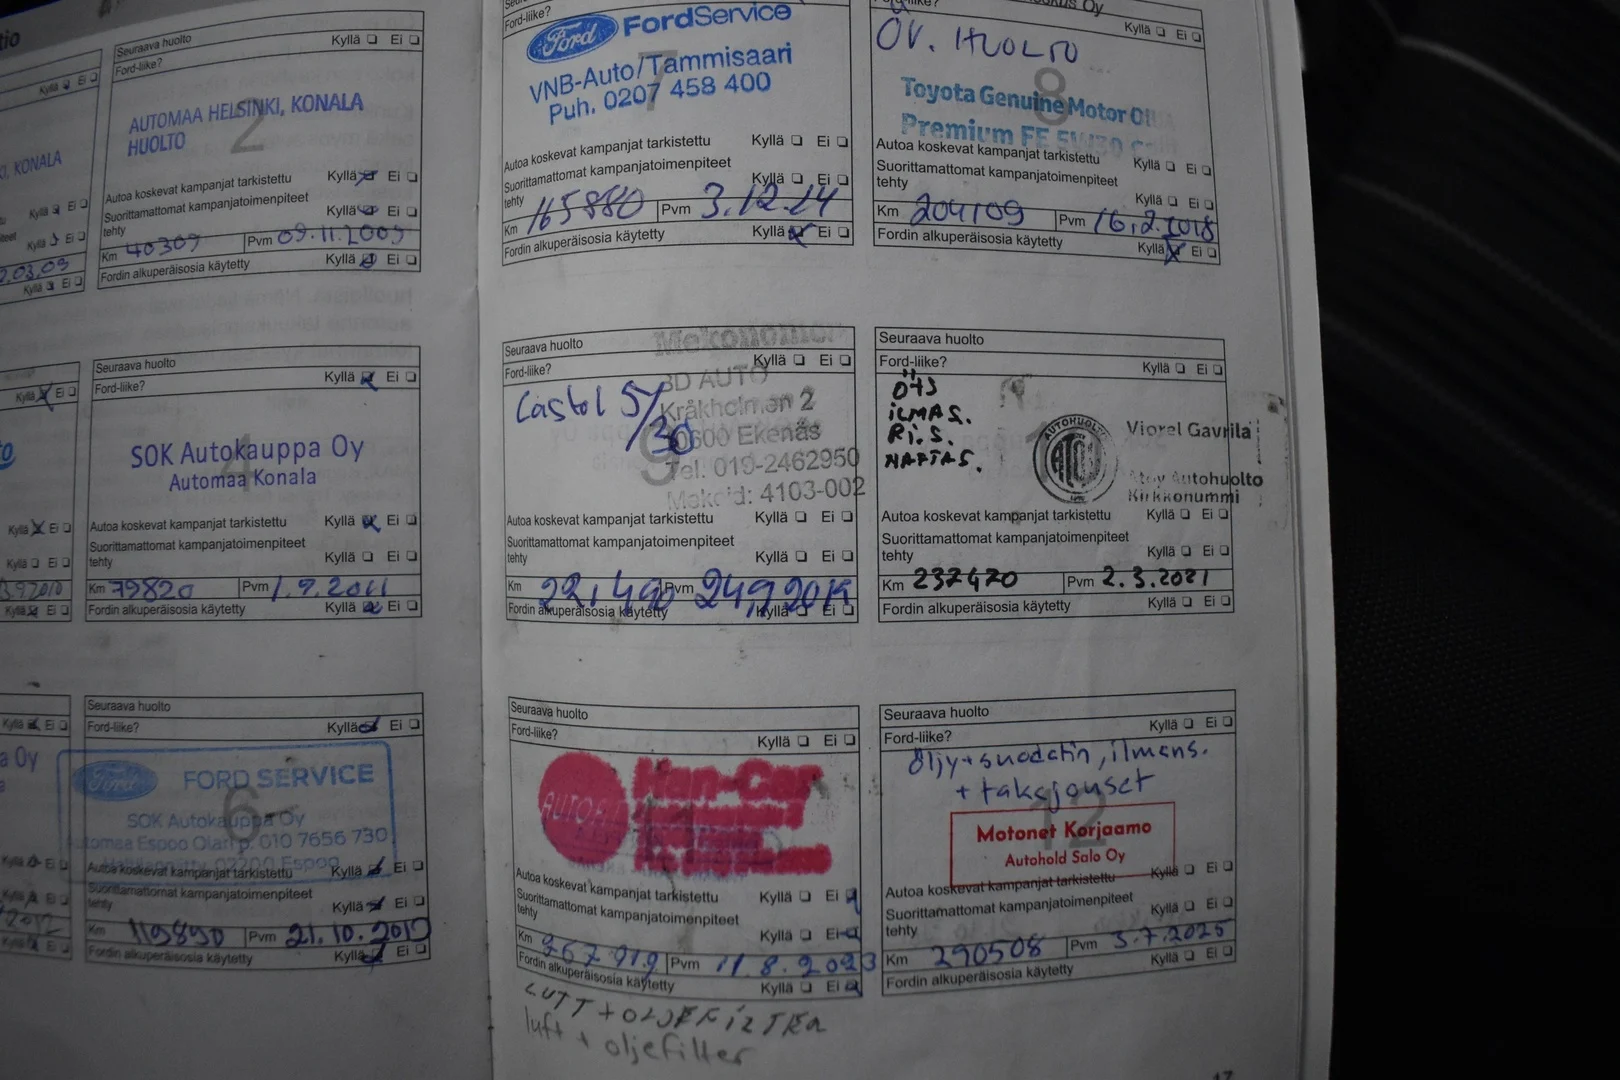 Seuraava huolto
Ford-liike?
Kyllä Ei
AUTOMAA HELSINKI, KONALA
HUOLTO
2
Autoa koskevat kampanjat tarkistettu Kyllä Ei
Suorittamattomat kampanjatoimenpiteet
tehty Kyllä Ei
Km 40309 Pvm 09.11.2009
Fordin alkuperäisosia käytetty Kyllä Ei
KONALA
Kyllä Ei
Kyllä Ei
Kyllä Ei
.03.09
Kyllä Ei
Seuraava huolto
Ford-liike? Kyllä Ei
SOK Autokauppa Oy
Automaa Konala
4
Autoa koskevat kampanjat tarkistettu Kyllä Ei
Suorittamattomat kampanjatoimenpiteet
tehty Kyllä Ei
Km 79820 Pvm 1.9.2011
Fordin alkuperäisosia käytetty Kyllä Ei
Kyllä Ei
Kyllä Ei
Kyllä Ei
Kyllä Ei
Seuraava huolto
Ford-liike? Kyllä Ei
Ford FORD SERVICE
SOK Autokauppa Oy
6
Automaa Espoo Olari p. 010 7656 730
02200 Espoo
Autoa koskevat kampanjat tarkistettu Kyllä Ei
Suorittamattomat kampanjatoimenpiteet
tehty Kyllä Ei
Km 119890 Pvm 21.10.2012
Fordin alkuperäisosia käytetty Kyllä Ei
Ford-liike?
Ford FordService
VNB-Auto/Tammisaari
Puh. 0207 458 400
7
Autoa koskevat kampanjat tarkistettu Kyllä Ei
Suorittamattomat kampanjatoimenpiteet
tehty Kyllä Ei
Km 165880 Pvm 3.12.14
Fordin alkuperäisosia käytetty Kyllä Ei
Oy
Kyllä Ei
ÖV. HUOLTO
8
Toyota Genuine Motor Oil
Premium FE 5W30
Autoa koskevat kampanjat tarkistettu Kyllä Ei
Suorittamattomat kampanjatoimenpiteet
tehty Kyllä Ei
Km 204109 Pvm 16.2.2018
Fordin alkuperäisosia käytetty Kyllä Ei
Seuraava huolto Mekonomen
Ford-liike? Kyllä Ei
BD AUTO
Castol 5/30
Kråkholmen 2
10600 Ekenäs
9
Tel. 019-2462950
Mekoid: 4103-002
Autoa koskevat kampanjat tarkistettu Kyllä Ei
Suorittamattomat kampanjatoimenpiteet
tehty Kyllä Ei
Km Pvm
Fordin alkuperäisosia käytetty Kyllä Ei
Seuraava huolto
Ford-liike? Kyllä Ei
ÖljS
iLMAS.
Ri.S.
NAFTAS.
AUTOHUOLTO
ATOY
Viorel Gavrila
Atoy Autohuolto
Kirkkonummi
Autoa koskevat kampanjat tarkistettu Kyllä Ei
Suorittamattomat kampanjatoimenpiteet
tehty Kyllä Ei
Km 237470 Pvm 2.3.2021
Fordin alkuperäisosia käytetty Kyllä Ei
Seuraava huolto
Ford-liike? Kyllä Ei
AUTOFIT Han-Car
11
Autoa koskevat kampanjat tarkistettu Kyllä Ei
Suorittamattomat kampanjatoimenpiteet
tehty Kyllä Ei
Km 267.919 Pvm 11.8.2023
Fordin alkuperäisosia käytetty Kyllä Ei
LUFT + OLJEFILTER
luft + oljefilter
Seuraava huolto
Ford-liike? Kyllä Ei
Öljy+suodatin, ilmans.
+ takajouset
12
Motonet Korjaamo
Autohold Salo Oy
Autoa koskevat kampanjat tarkistettu Kyllä Ei
Suorittamattomat kampanjatoimenpiteet
tehty Kyllä Ei
Km 290508 Pvm 3.7.2025
Fordin alkuperäisosia käytetty Kyllä Ei
17